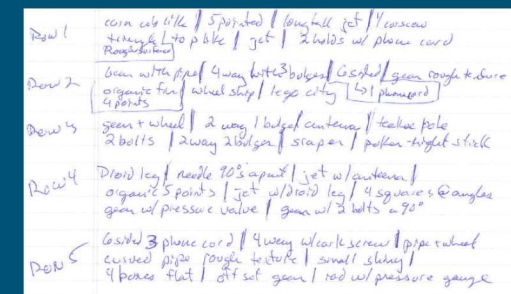 Row 1 corn cob like | 5 pointed | long tall jet | 4 corscrew
triangle | top like | jet | 2 holds w/ phone card
Rough texture
Row 2 Gear with pipe | 4 way with 3 bolges | 6 sided | gear rough texture
organic fin | wheel ship | lego city | 1 phone cord
4 points
Row 3 gear + wheel | 2 way 1 bulge/antenna | teelike pole
2 bolts | 2way 2 bolger | scraper | poker-night stick
Row 4 Droid leg | needle 90's apart | jet w/antenna |
organic 5 points | jet w/droid leg | 4 squares @ angles
gear w/ pressure value | gear w/ 2 bolts @ 90°
Row 5 6 sided 3 phone cord | 4 way w/ cark screw | pipe + wheel
curved pipe rough texture | small skinny |
4 boxes flat | off set gear | rod w/ pressure gauge